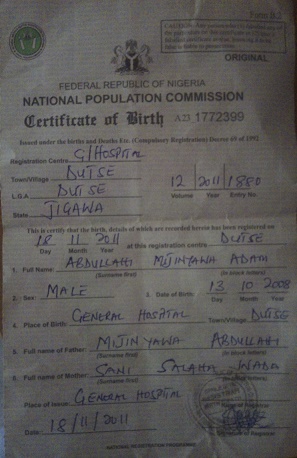 Form B.2
ORIGINAL
FEDERAL REPUBLIC OF NIGERIA
NATIONAL POPULATION COMMISSION
Certificate of Birth A23 1772399
Issued under the births and Deaths Etc. (Compulsory Registration) Decree 69 of 1992
Registration Centre G/HOSPITAL
Town/Village DUTSE
L.G.A DUTSE 12 2011 1880
Volume Year Entry No.
State JIGAWA
This is certify that the birth, details of which are recorded herein has been registered on
18 11 2011 at this registration centre DUTSE
Day Month Year
1. Full Name: ABDULLAHI MIJINYAWA ADAM
(Surname first) (In block letters)
2. Sex: MALE 3. Date of Birth: 13 10 2008
Day Month Year
4. Place of Birth: GENERAL HOSPITAL Town/Village DUTSE
5. Full name of Father: MIJINYAWA ABDULLAHI
(Surname first) (In block letters)
6. Full name of Mother: SANI SALAHA WADA
(Surname first) (In block letters)
Place of Issue: GENERAL HOSPITAL
Date: 18/11/2011
Signature of Registrar